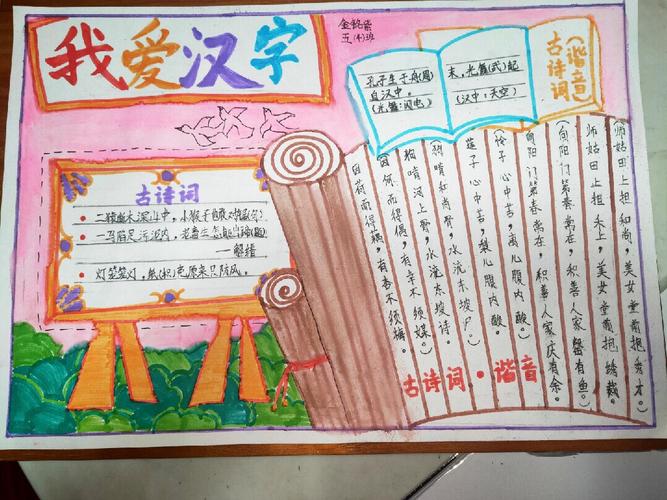 我爱汉字
五(4)班
孔子生于舟(周)
自汉中。
(光舞:闪电)
末,光舞(武)起
(汉中:天空)
古诗词
(谐音)
古诗词
二猿断木深山中,小猴子也敢对锯(句)
一马陷足污泥内,老畜生怎能出蹄(题)
——解缙
灯笼笼灯,纸(枳)壳原来只防风。
(师姑田上担和尚,美女堂前抱秀才。)
师姑田上担禾上,美女堂前抱绣裁。
(向阳门第春常在,积善人家罄有鱼。)
向阳门第春常在,积善人家庆有余。
(怜子心中苦,离儿腹内酸。)
莲子心中苦,梨儿腹内酸。
(狗啃和尚骨,水流东坡尸。)
狗啃河上骨,水流东坡诗。
(因何而得偶,有幸不须媒。)
因荷而得藕,有杏不须梅。
古诗词·谐音